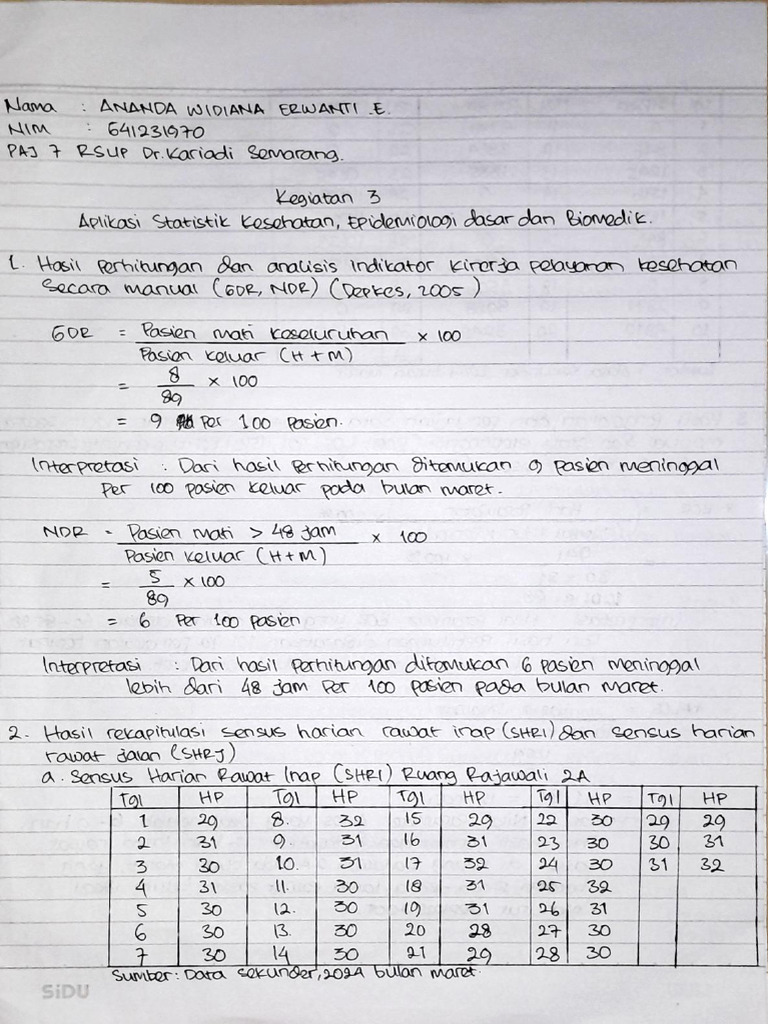 Nama : ANANDA WIDIANA ERWANTI .E.
NIM : 641231970
PAJ 7 RSUP Dr. Kariadi Semarang.
Kegiatan 3
Aplikasi Statistik Kesehatan, Epidemiologi dasar dan Biomedik.
1. Hasil Perhitungan dan analisis Indikator kinerja pelayanan kesehatan
secara manual (GDR, NDR) (Depkes, 2005)
GDR = Pasien mati keseluruhan × 100
Pasien keluar (H + M)
= 8 × 100
89
= 9 Per 100 Pasien.
Interpretasi : Dari hasil Perhitungan ditemukan 9 pasien meninggal
Per 100 pasien keluar pada bulan maret.
NDR = Pasien mati > 48 jam × 100
Pasien keluar (H+M)
= 5 × 100
89
= 6 Per 100 Pasien
Interpretasi : Dari hasil perhitungan ditemukan 6 pasien meninggal
lebih dari 48 jam Per 100 pasien pada bulan maret.
2. Hasil rekapitulasi sensus harian rawat inap (SHRI) dan sensus harian
rawat jalan (SHRJ)
a. Sensus Harian Rawat Inap (SHRI) Ruang Rajawali 2A
Tgl HP Tgl HP Tgl HP Tgl HP Tgl HP
1 29 8. 32 15 29 22 30 29 29
2 31 9. 31 16 31 23 30 30 31
3 30 10. 31 17 32 24 30 31 32
4 31 11. 30 18 31 25 32
5 30 12. 30 19 31 26 31
6 30 13. 30 20 28 27 30
7 30 14 30 21 29 28 30
Sumber : Data sekunder, 2024 bulan maret.
SiDU